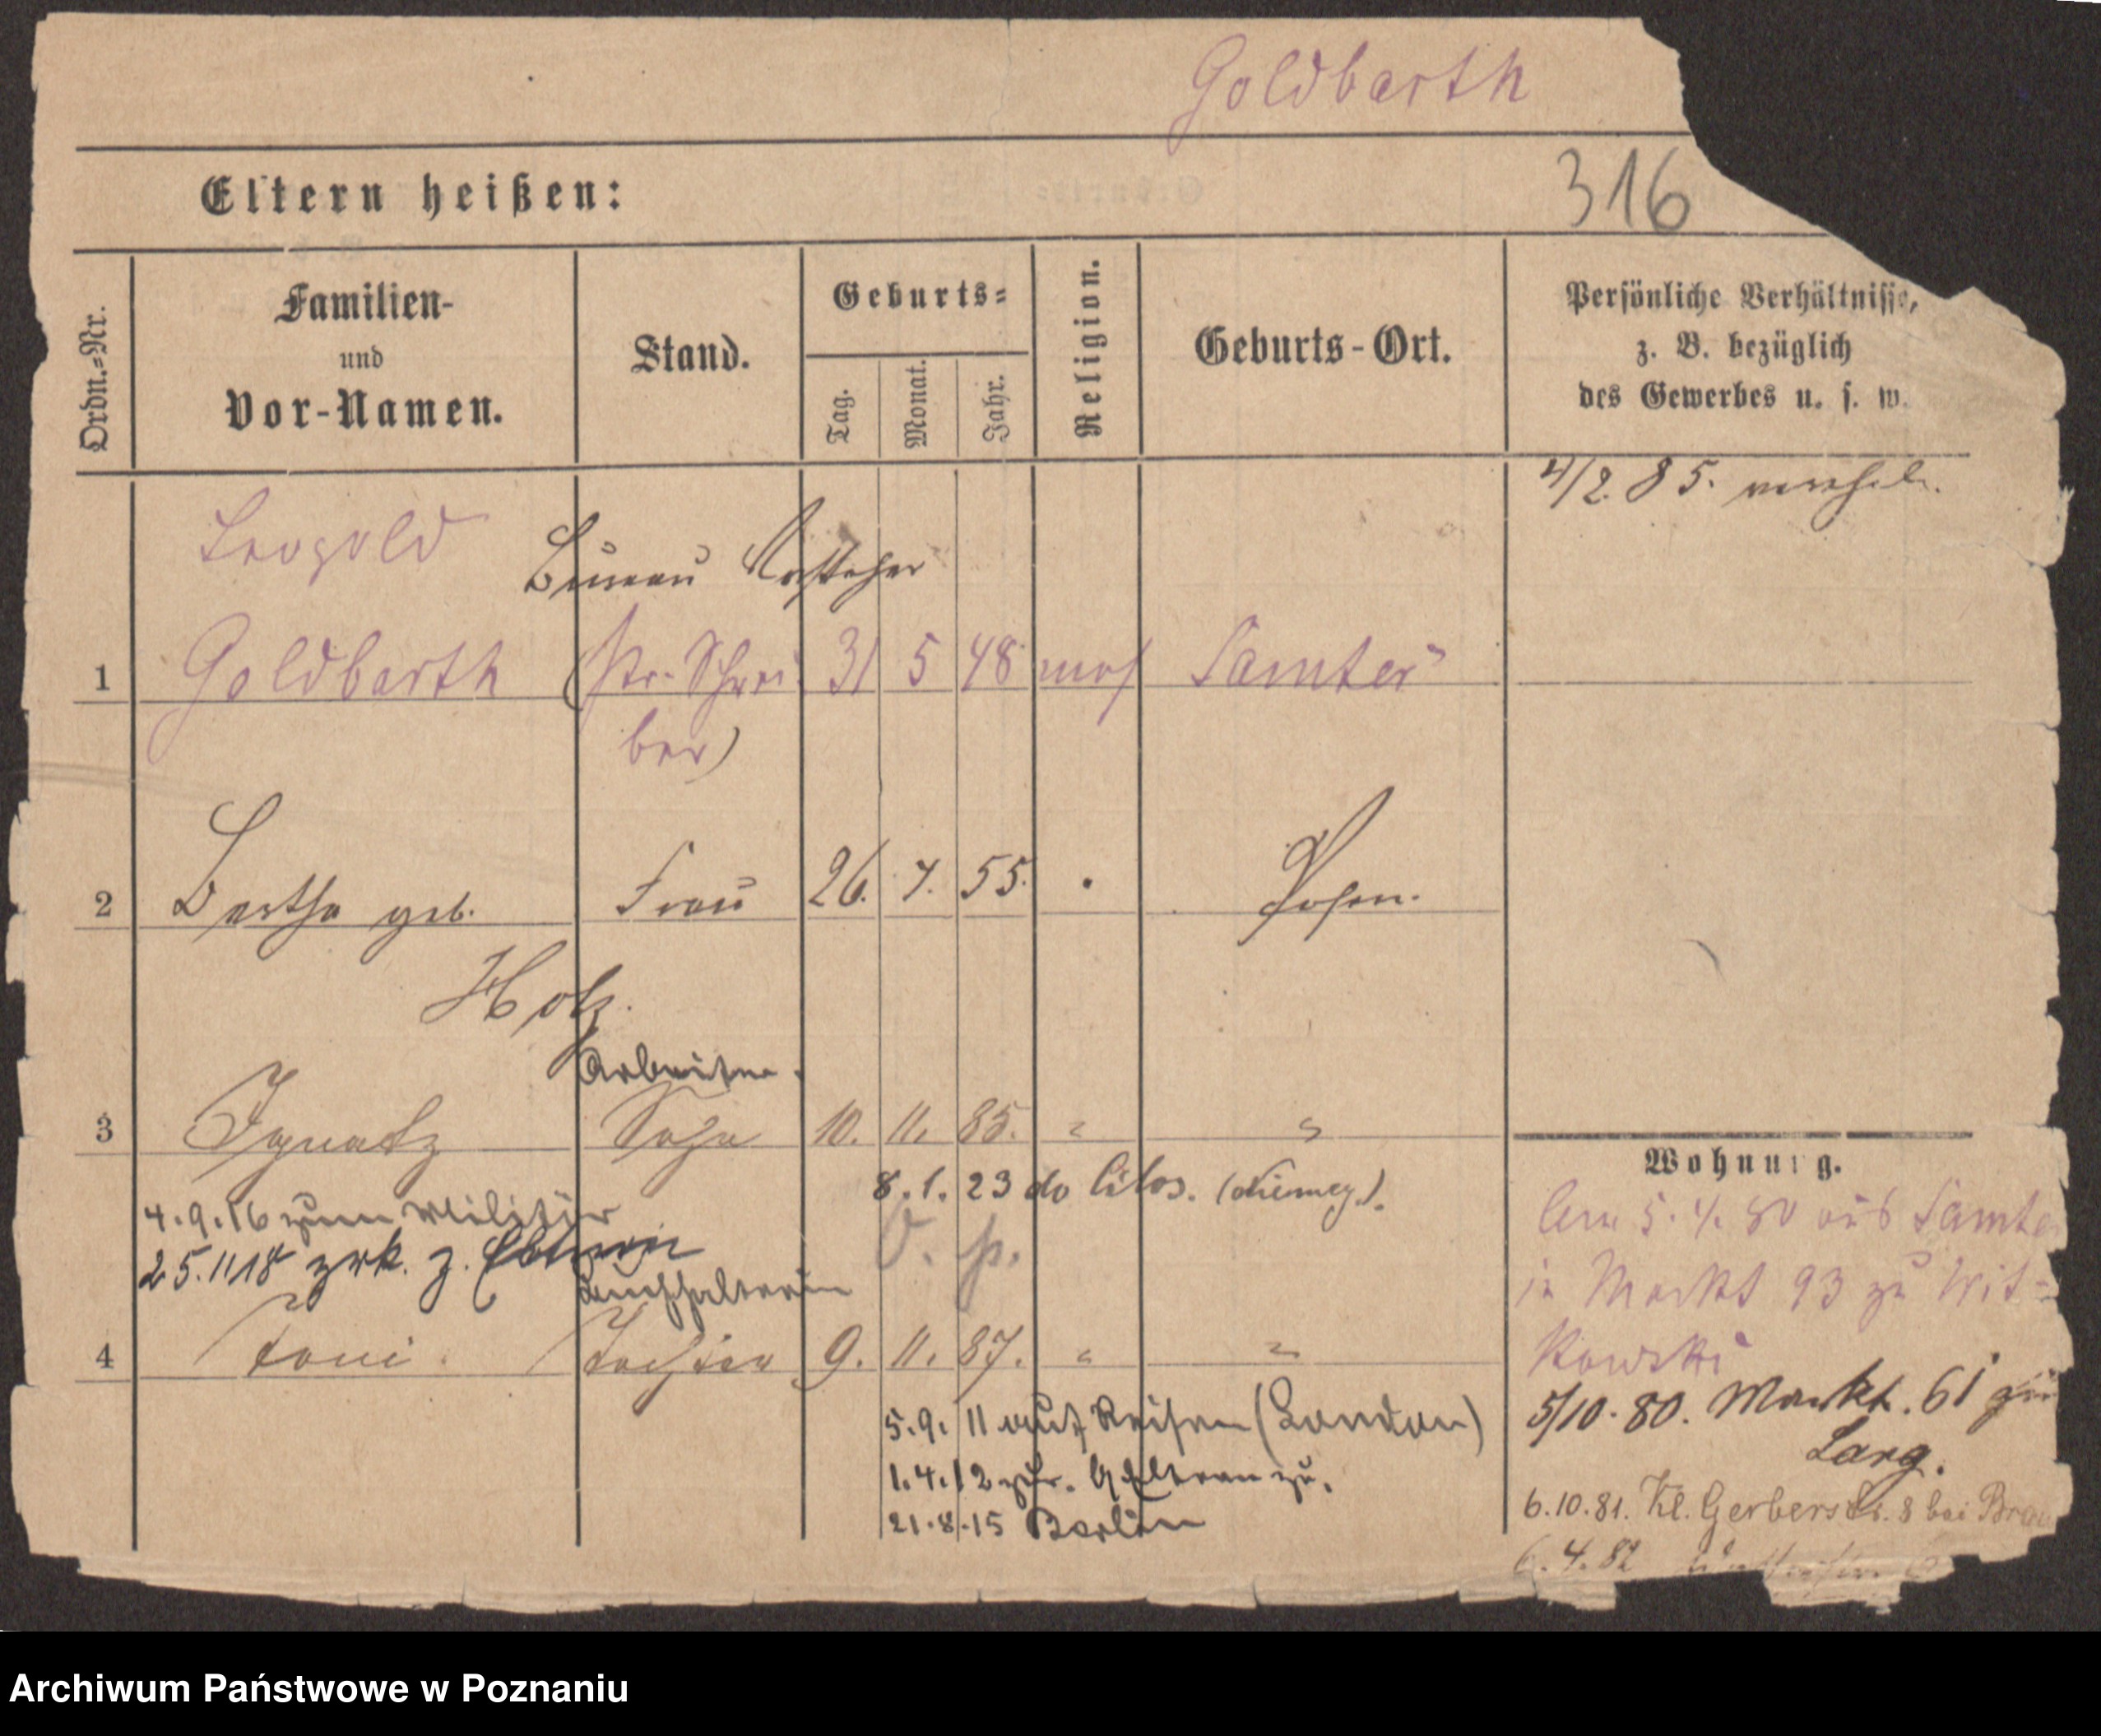 Goldbarth
316
Eltern heißen:
Ordn.=Nr.
Familien-
und
Vor-Namen.
Stand.
Geburts=
Tag.
Monat.
Jahr.
Religion.
Geburts-Ort.
Persönliche Verhältnisse,
z. B. bezüglich
des Gewerbes u. s. w.
4/2. 85. verehel.
Leopold
Bureau Vorsteher
1 Goldbarth (Pr. Schrei- 31 5 48 mos Samter
ber)
2 Bertha geb. Frau 26. 7. 55. Posen.
Holz.
Arbeiter.
3 Ignatz Sohn 10. 11. 85. " "
8. 1. 23 do
4.9.16 zum Militär
25.11 18 zrk. z. Eltern
V. p.
Buchhalterin
4 Toni. Tochter 9. 11. 87. " "
5.9. 11 auf Reisen (London)
1.4.12 zur. Eltern zu.
21.8.15 Berlin
Wohnung.
5. 4. 80 aus Samter
in Markt 93 zu Wit=
kowski
5/10. 80. Markt. 61 zu
Larg.
6.10.81. Kl. Gerberstr. 8 bei
6. 4. 82
Archiwum Państwowe w Poznaniu